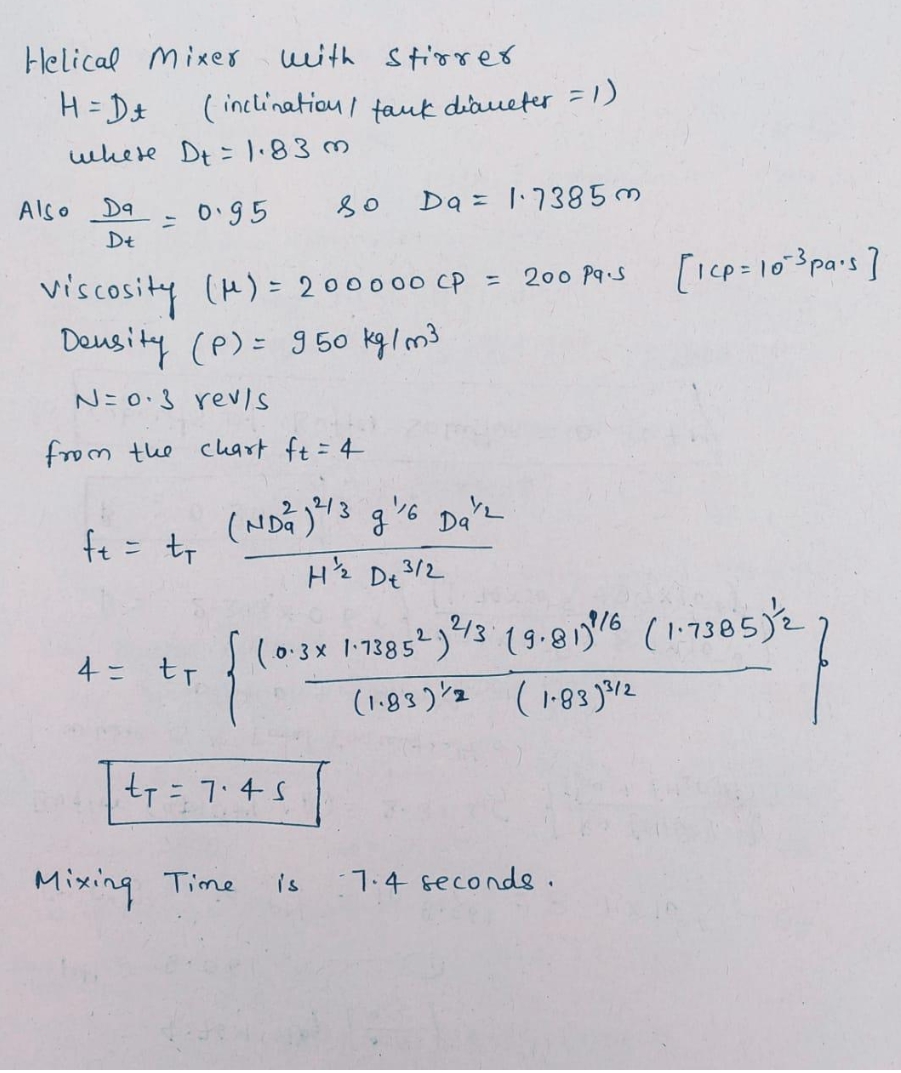 Helical Mixer with stirrer
H = Dt (inclination / tank diameter = 1)
where Dt = 1.83 m
Also Da/Dt = 0.95 so Da = 1.7385 m
Viscosity (μ) = 200000 CP = 200 Pa.s [1cp = 10^-3 pa.s]
Density (ρ) = 950 kg/m^3
N = 0.3 rev/s
from the chart ft = 4
ft = tT (NDa^2)^2/3 g^1/6 Da^1/2 / H^1/2 Dt^3/2
4 = tT { (0.3 x 1.7385^2)^2/3 (9.81)^1/6 (1.7385)^1/2 / (1.83)^1/2 (1.83)^3/2 }
tT = 7.4 s
Mixing Time is 7.4 seconds.